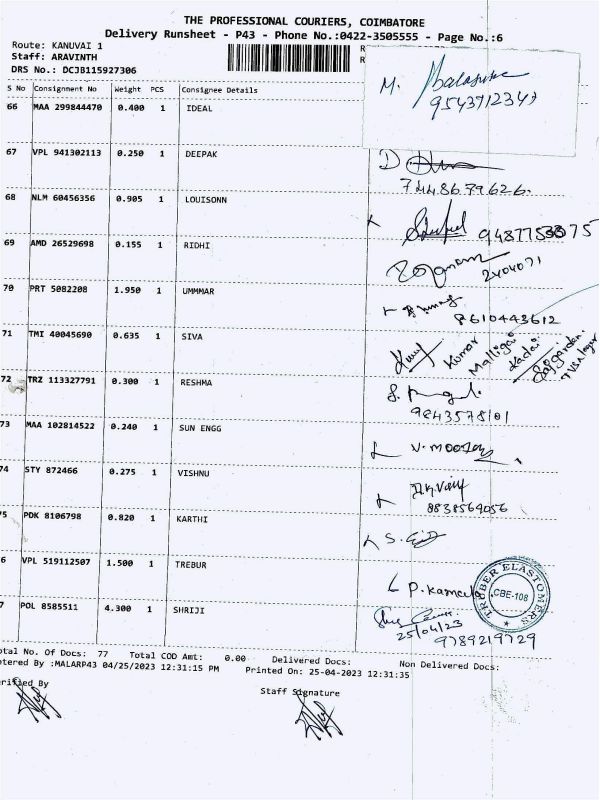 THE PROFESSIONAL COURIERS, COIMBATORE
Delivery Runsheet - P43 - Phone No.:0422-3505555 - Page No.:6
Route: KANUVAI 1
Staff: ARAVINTH
DRS No.: DCJB115927306
S No Consignment No Weight PCS Consignee Details
M.
9543712347
66 MAA 299844470 0.400 1 IDEAL
67 VPL 941302113 0.250 1 DEEPAK
7448679626.
68 NLM 60456356 0.905 1 LOUISONN
69 AMD 26529698 0.155 1 RIDHI
2404071
70 PRT 5082208 1.950 1 UMMMAR
8610443612
71 TMI 40045690 0.635 1 SIVA
Kumar
Malligai
Kadai
72 TRZ 113327791 0.300 1 RESHMA
9843578101
73 MAA 102814522 0.240 1 SUN ENGG
V. Moo
74 STY 872466 0.275 1 VISHNU
8838564056
75 PDK 8106798 0.820 1 KARTHI
S.
76 VPL 519112507 1.500 1 TREBUR
P. Kamala
TRUBER ELASTOMERS
CBE-108
77 POL 8585511 4.300 1 SHRIJI
25/04/23
9789219729
Total No. Of Docs: 77 Total COD Amt: 0.00 Delivered Docs: Non Delivered Docs:
Entered By :MALARP43 04/25/2023 12:31:15 PM Printed On: 25-04-2023 12:31:35
Verified By
Staff Signature